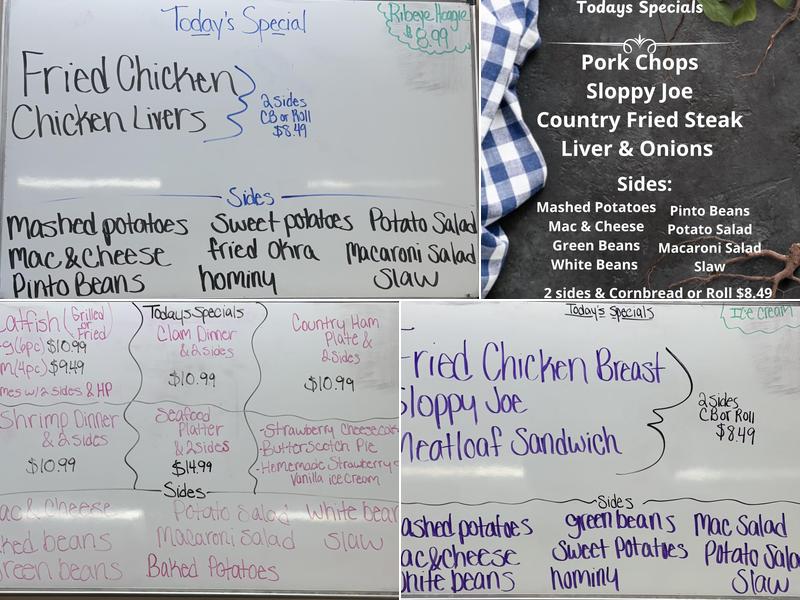 Today's Special
Ribeye Hoagie
$8.99
Fried Chicken
Chicken Livers
2 Sides
CB or Roll
$8.49
Sides
Mashed potatoes
Sweet potatoes
Potato Salad
Mac & Cheese
fried Okra
Macaroni Salad
Pinto Beans
hominy
Slaw
Todays Specials
Pork Chops
Sloppy Joe
Country Fried Steak
Liver & Onions
Sides:
Mashed Potatoes
Pinto Beans
Mac & Cheese
Potato Salad
Green Beans
Macaroni Salad
White Beans
Slaw
2 sides & Cornbread or Roll $8.49
Today's Specials
atfish (Grilled
or
Fried)
g(6pc) $10.99
m(4pc) $9.49
mes w/2 sides & HP
Clam Dinner
& 2 Sides
$10.99
Country Ham
Plate &
2 Sides
$10.99
Shrimp Dinner
& 2 sides
$10.99
Seafood
Platter
& 2 Sides
$14.99
-Strawberry Cheesecake
-Butterscotch Pie
-Homemade Strawberry &
Vanilla ice cream
Sides
ac & Cheese
Potato Salad
White bean
ked beans
Macaroni Salad
Slaw
reen beans
Baked Potatoes
Today's Specials
Ice cream
Fried Chicken Breast
Sloppy Joe
Meatloaf Sandwich
2 Sides
CB or Roll
$8.49
Sides
ashed potatoes
green beans
Mac Salad
ac & cheese
Sweet Potatoes
Potato Sala
hite beans
hominy
Slaw